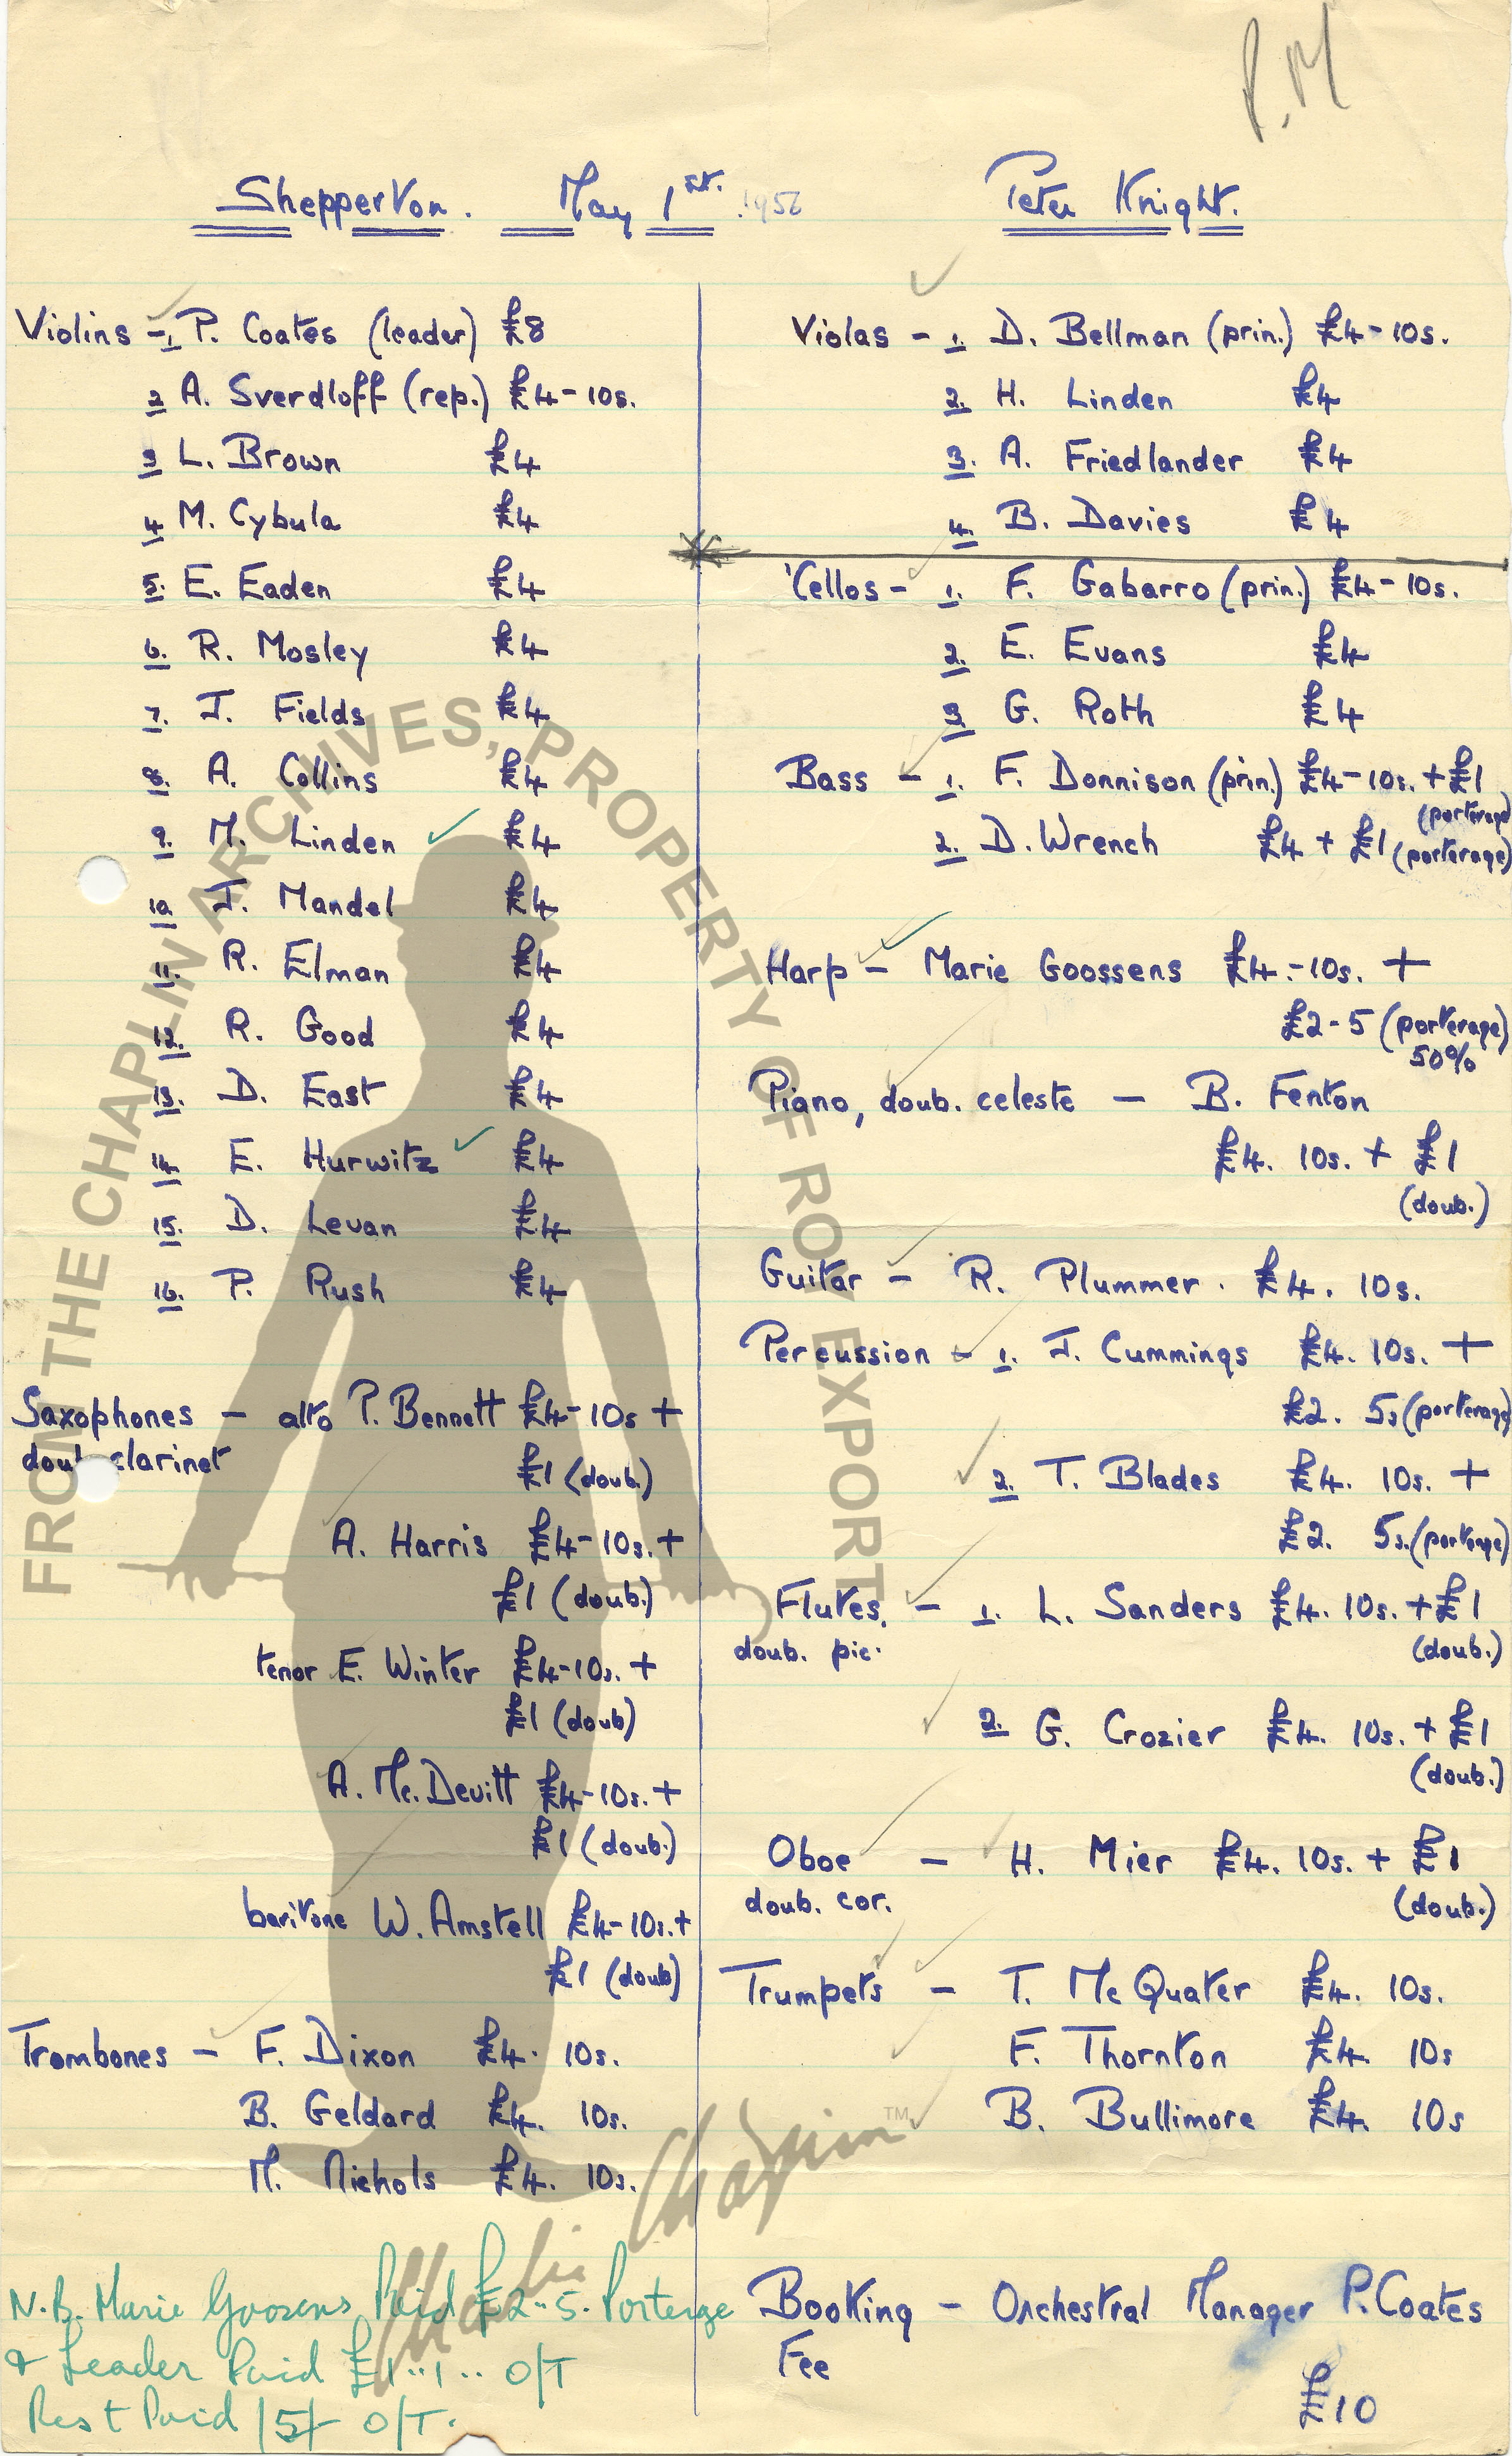 P.M
Shepperton. May 1st. 1956 Peter Knight.
Violins - 1. P. Coates (leader) £8
2 A. Sverdloff (rep.) £4-10s.
3 L. Brown £4
4 M. Cybula £4
5. E. Eaden £4
6. R. Mosley £4
7. J. Fields £4
8. A. Collins £4
9. M. Linden £4
10 J. Mandel £4
11. R. Elman £4
12. R. Good £4
13. D. East £4
14. E. Hurwitz £4
15. D. Levan £4
16. P. Rush £4
Saxophones - alto P. Bennett £4-10s +
doub. clarinet £1 (doub.)
A. Harris £4-10s. +
£1 (doub.)
tenor E. Winter £4-10s. +
£1 (doub)
A. Mc. Devitt £4-10s. +
£1 (doub.)
baritone W. Amstell £4-10s. +
£1 (doub)
Trombones - F. Dixon £4. 10s.
B. Geldard £4. 10s.
M. Nichols £4. 10s.
N.B. Marie Goosens Paid £2..5. Porterage
& Leader Paid £1..1.. O/T
Rest Paid 15/- O/T.
Violas - 1. D. Bellman (prin.) £4-10s.
2. H. Linden £4
3. A. Friedlander £4
4. B. Davies £4
'Cellos - 1. F. Gabarro (prin.) £4-10s.
2. E. Evans £4
3. G. Roth £4
Bass - 1. F. Donnison (prin.) £4-10s. + £1
(porterage)
2. D. Wrench £4 + £1 (porterage)
Harp - Marie Goossens £4.-10s. +
£2-5 (porterage)
50%
Piano, doub. celeste - B. Fenton
£4. 10s. + £1
(doub.)
Guitar - R. Plummer. £4. 10s.
Percussion - 1. J. Cummings £4. 10s. +
£2. 5s (porterage)
2. T. Blades £4. 10s. +
£2. 5s. (porterage)
Flutes. - 1. L. Sanders £4. 10s. + £1
doub. pic. (doub.)
2. G. Crozier £4. 10s. + £1
(doub.)
Oboe - H. Mier £4. 10s. + £1
doub. cor. (doub.)
Trumpets - T. Mc Quater £4. 10s.
F. Thornton £4. 10s
B. Bullimore £4. 10s
Booking - Orchestral Manager P. Coates
Fee
£10
FROM THE CHAPLIN ARCHIVES, PROPERTY OF ROY EXPORT
Charlie Chaplin™